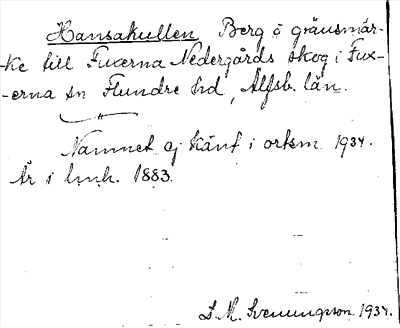 Hansakullen Berg o gränsmär-
ke till Fuxerna Nedergårds skog i Fux-
-erna sn Flundre hd, Älfsb. län.
Namnet ej känt i ortsm. 1934.
Är i lmh. 1883.
S. M. Svenungsson. 1934.